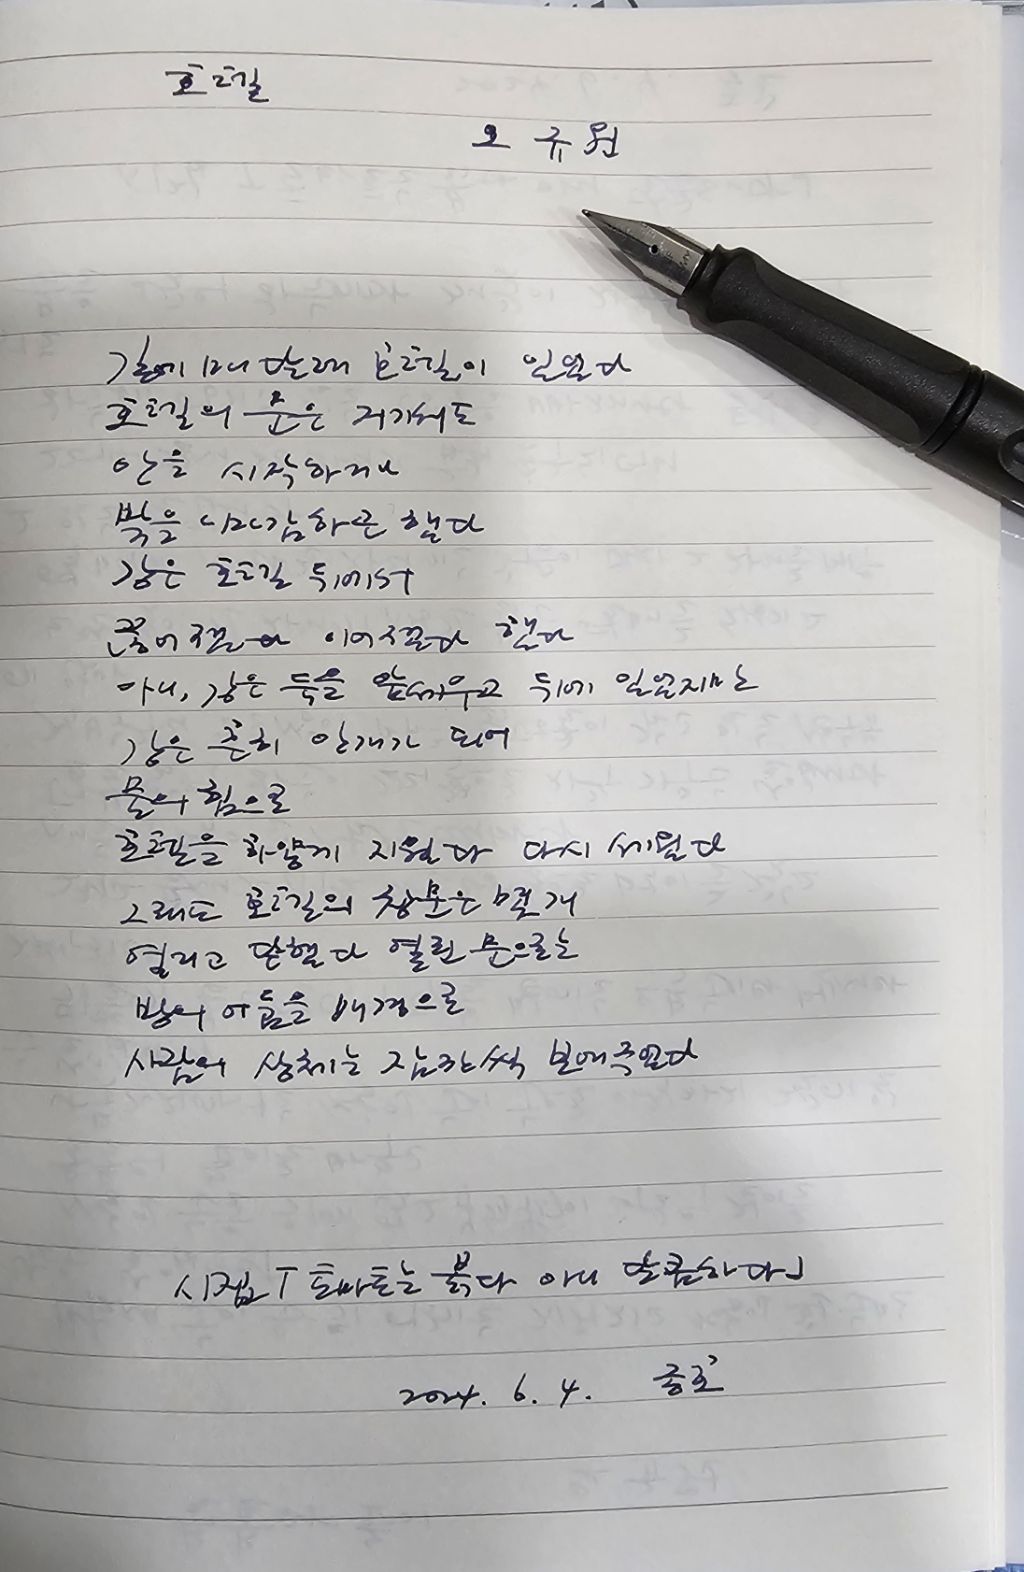 호텔
오규원
길에 매달래 호텔이 일있다
호텔의 문은 저가해도
안을 시작하거나
밖을 마감하곤 했다
강은 호텔 뒤에서
끊어졌다 이어졌다 했다
아니, 강은 둑을 앞세우고 뒤에 있었지만
강은 흔히 안개가 되어
물의 힘으로
호텔을 하얗게 지웠다 다시 세웠다
그래도 호텔의 창문은 몇 개
열리고 닫혔다 열린 문으로는
방의 어둠을 배경으로
사람의 상체는 잠깐씩 보여주었다
시집 「토마토는 붉다 아니 달콤하다」
2024. 6. 4.